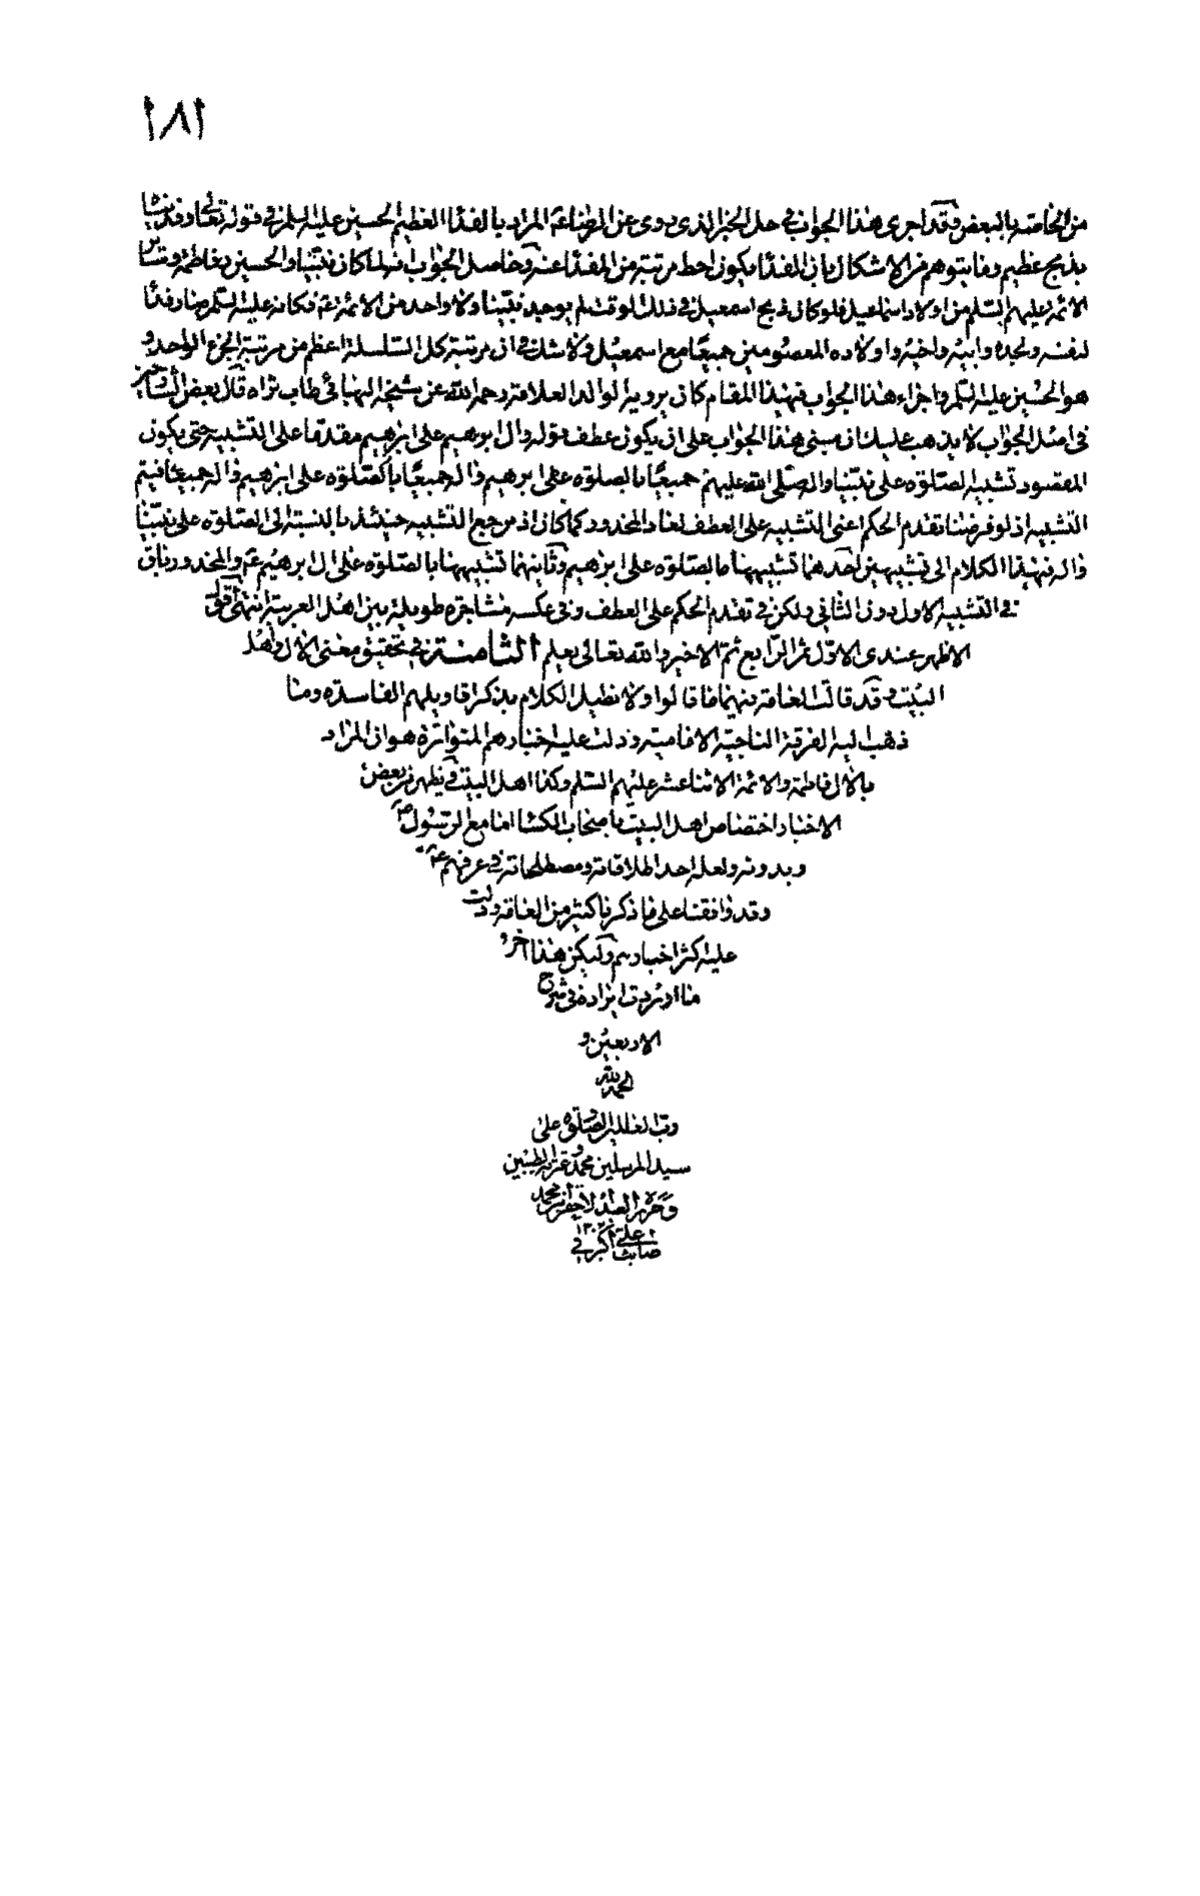 ١٨١
من الخاصه بالبعض فقد اجرى هذا الجواب فى حل الخبر الذى روى عن الرضا عم المراد بالفداء العظيم الحسين عليه السلم فى قوله تعالى وفديناه
بذبح عظيم وما يتوهم من الاشكال بان المفدا يكون احط مرتبة من المفدا عنه وحاصل الجواب انه لما كان نبينا والحسين وفاطمة وسائر
الائمة عليهم السلم من اولاد اسماعيل فلو كان ذبح اسمعيل فى ذلك الوقت لم يوجد نبينا ولا واحد من الائمة عم فكانه عليه السلم صار فداء
لنفسه ولجده وابيه واخيه واولاده المعصومين جميعا مع اسمعيل ولا شك فى ان مرتبة كل السلسلة اعظم من مرتبة الجزء الواحد و
هو الحسين عليه السلم واجراء هذا الجواب فى هذا المقام كان يرويه الوالد العلامة رحمه الله عن شيخه البهائى طاب ثراه قال بعض المشايخ
فى اصل الجواب لا يذهب عليك ان مبنى هذا الجواب على ان يكون عطف قوله وال ابرهيم على ابرهيم مقدما على التشبيه حتى يكون
المقصود تشبيه الصلوة على نبينا واله صلى الله عليهم جميعا بالصلوة على ابرهيم واله جميعا بالصلوة على ابرهيم واله جميعا فيتم
التشبيه اذ لو فرضنا تقدم الحكم اعنى التشبيه على العطف لعاد المحذور كما كان اذ مرجع التشبيه حينئذ بالنسبة الى الصلوة على نبينا
واله فى هذا الكلام الى تشبيهين احدهما تشبيهها بالصلوة على ابرهيم وثانيهما تشبيهها بالصلوة على ال ابرهيم عم والمحذور باق
فى التشبيه الاول دون الثانى ولكن فى تقدم الحكم على العطف وفى عكسه مشاجرة طويلة بين اهل العربية انتهى اقول
الاظهر عندى الاول ثم الرابع ثم الاخير والله تعالى يعلم الثامنة فى تحقيق معنى الال واهل
البيت وقد قالت العامة فيهما ما قالوا ولا نطيل الكلام بذكر اقاويلهم الفاسدة وما
ذهب اليه الفرقة الناجية الامامية ودلت عليه اخبارهم المتواترة هو ان المراد
بالال فاطمة والائمة الاثنا عشر عليهم السلم وكذا اهل البيت ويظهر من بعض
الاخبار اختصاص اهل البيت باصحاب الكسا اما مع الرسول ص
وبدونه ولعله احد اطلاقاته ومصطلحاته فى عرفهم عم
وقد وافقنا على ما ذكرنا كثير من العامة ودلت
عليه اكثر اخبارهم وليكن هذا اخر
ما اردت ايراده فى شرح
الاربعين و
الحمد لله
رب العالمين والصلوة على
سيد المرسلين محمد وعترته الطيبين
وحرره العبد الاحقر محمد
على ١٣٠٢